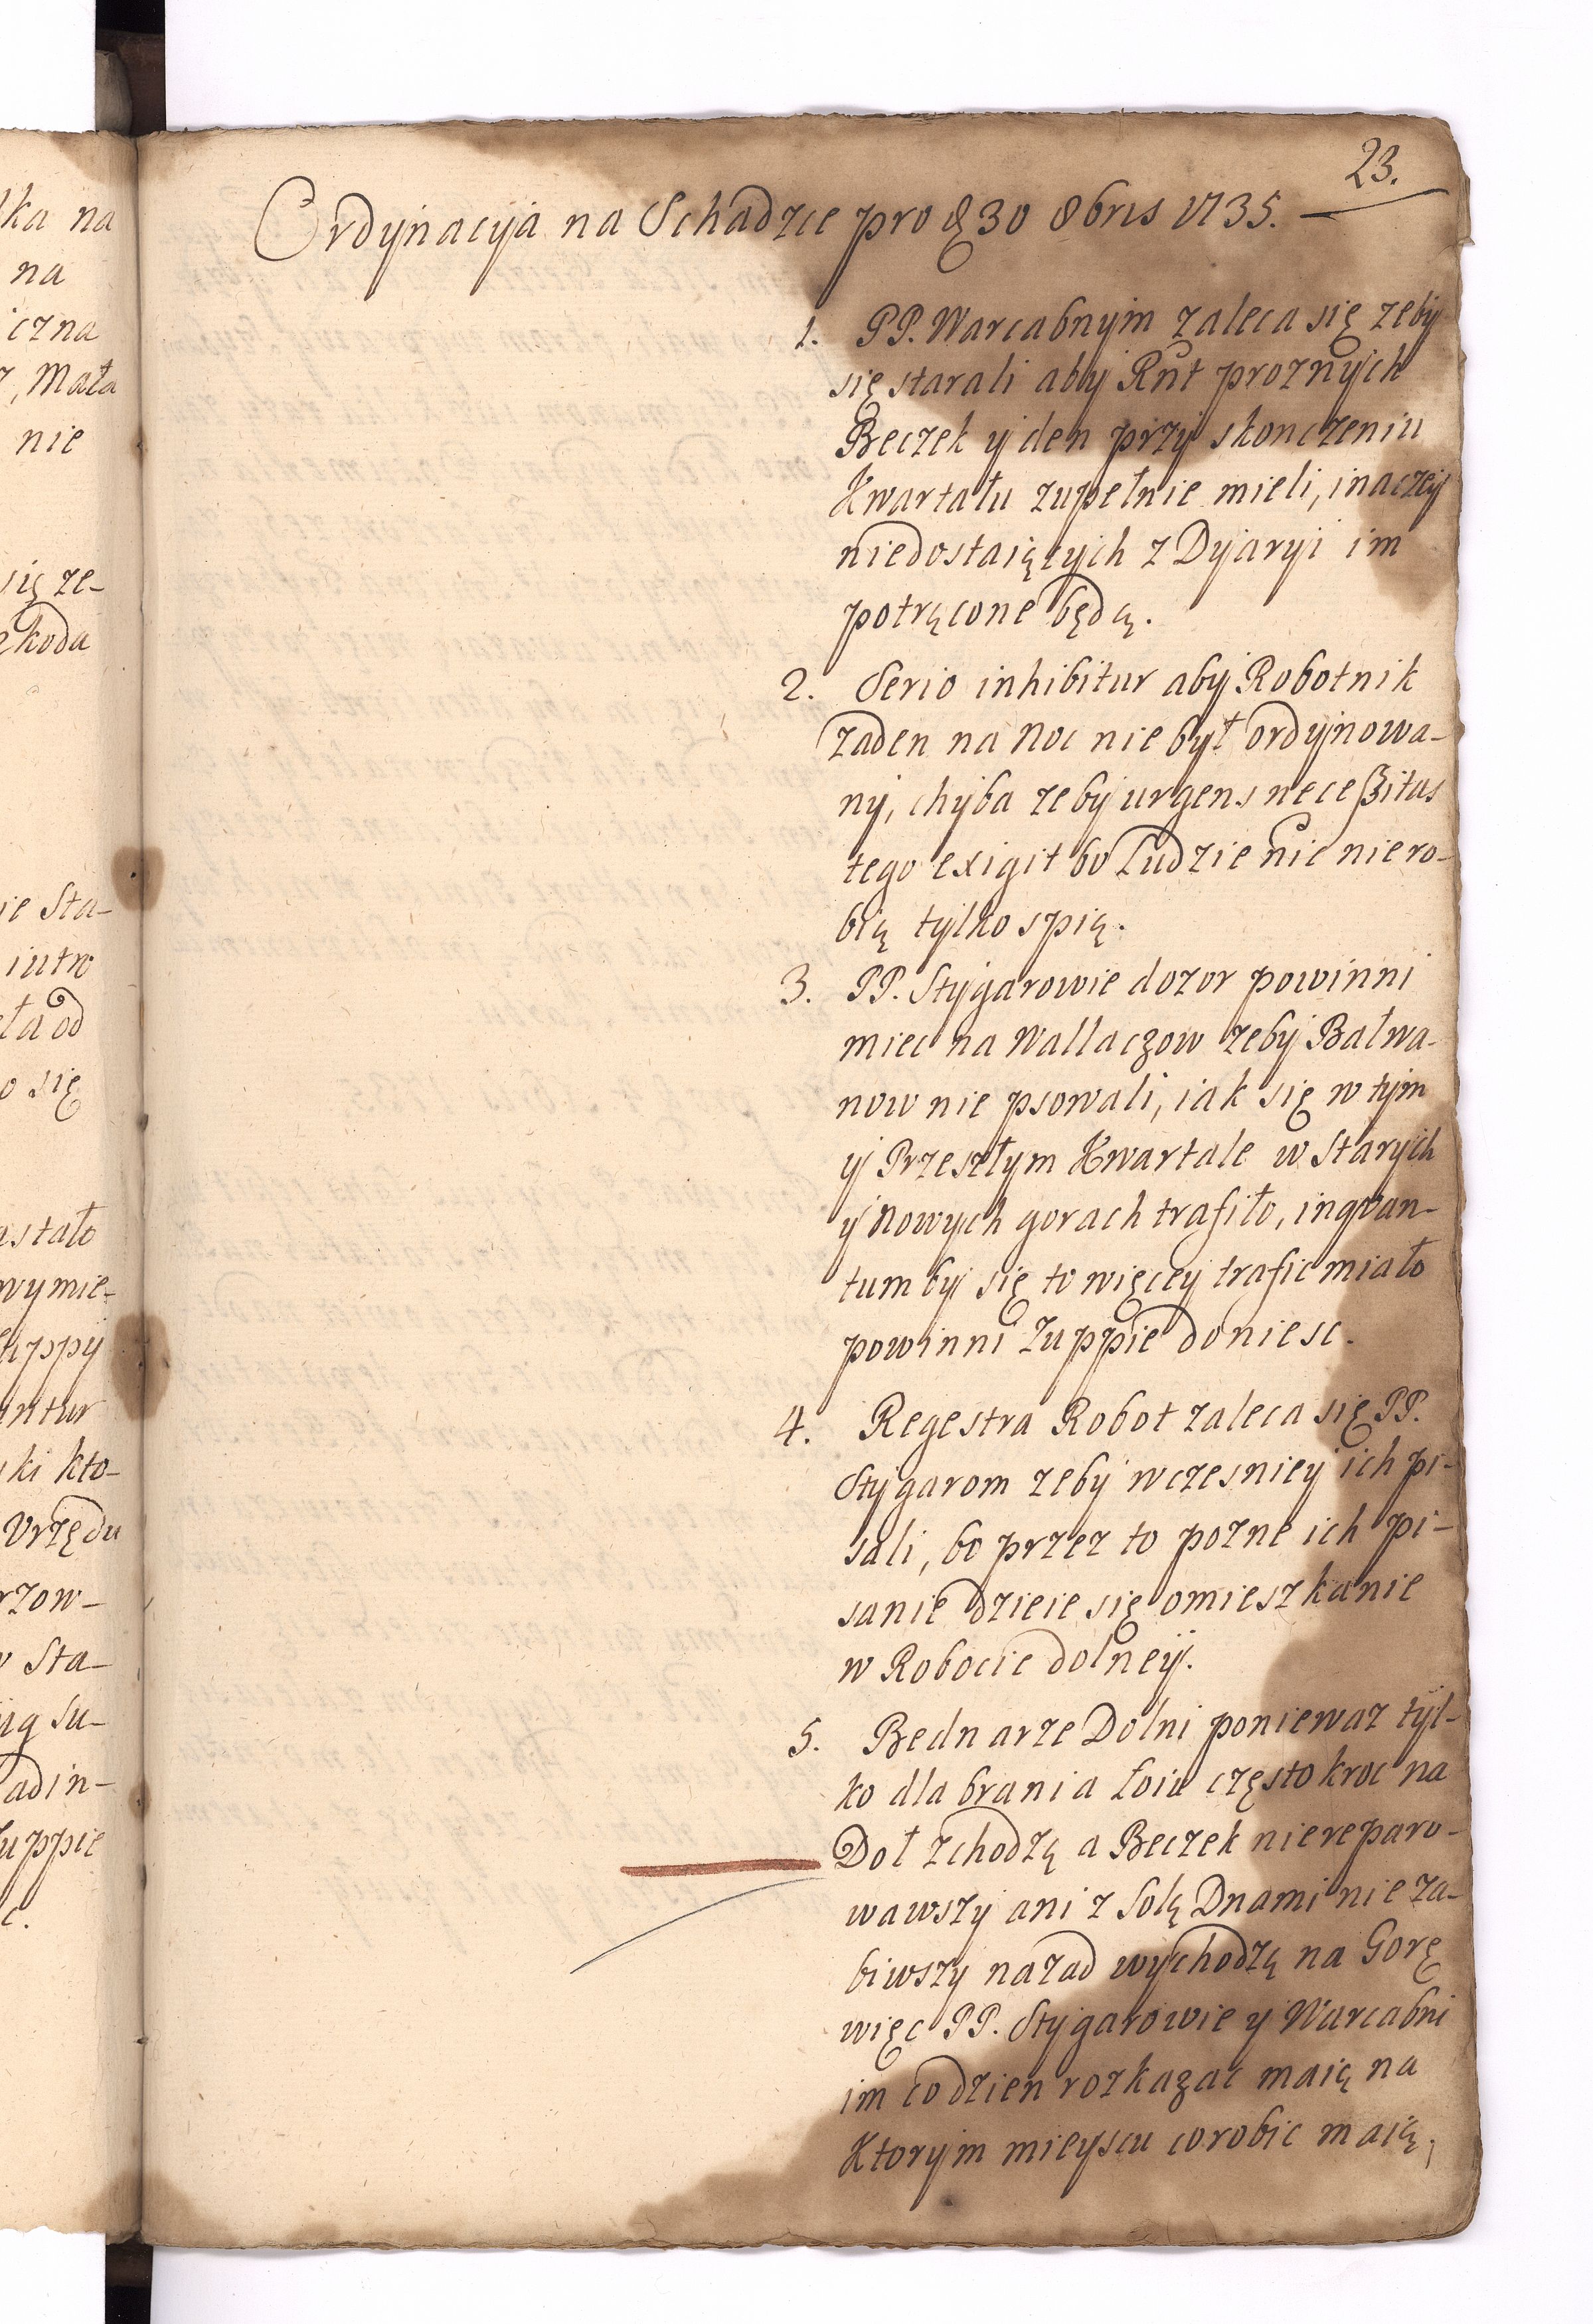 23.
Ordynacyja na Schadzce pro d 30 8bris 1735.
1. PP. Warcabnym zaleca się zeby
się starali aby Rnt proznych
Beczek y den przy skonczeniu
Kwartału zupełnie mieli, inaczey
niedostaiących z Dyaryi im
potrącone będą.
2. Serio inhibitur aby Robotnik
zaden na Noc nie był ordynowa-
ny, chyba zeby urgens neceßitas
tego exigit bo Ludzie nic niero-
bią tylko spią.
3. PP. Stygarowie dozor powinni
miec na Wallaczow zeby Bałwa-
now nie psowali, iak się w tym
y Przeszłym Kwartale w Starych
y Nowych gorach trafiło, inqvan-
tum by się to więcey trafic miało
powinni Zuppie doniesc.
4. Regestra Robot zaleca się PP.
Stygarom zeby wczesniey ich pi-
sali, bo przez to pozne ich pi-
sanie dzieie się omieszkanie
w Robocie dolney.
5. Bednarze Dolni poniewaz tyl-
ko dla brania Łoiu częstokroc na
Doł zchodzą a Beczek niereparo-
wawszy ani z Solą Dnami nie za-
biwszy nazad wychodzą na Gorę
więc PP. Stygarowie y Warcabni
im codzien rozkazac maią na
Ktorym mieyscu corobic maią.
lka na
na
iczna
Mała
nie
się ze-
zkoda
ie Sta-
iutro
ła od
o się
astało
wymie-
uppy
antur
ki kto-
Vrzędu
rzow-
Sta-
su-
adin-
Zuppie
c.